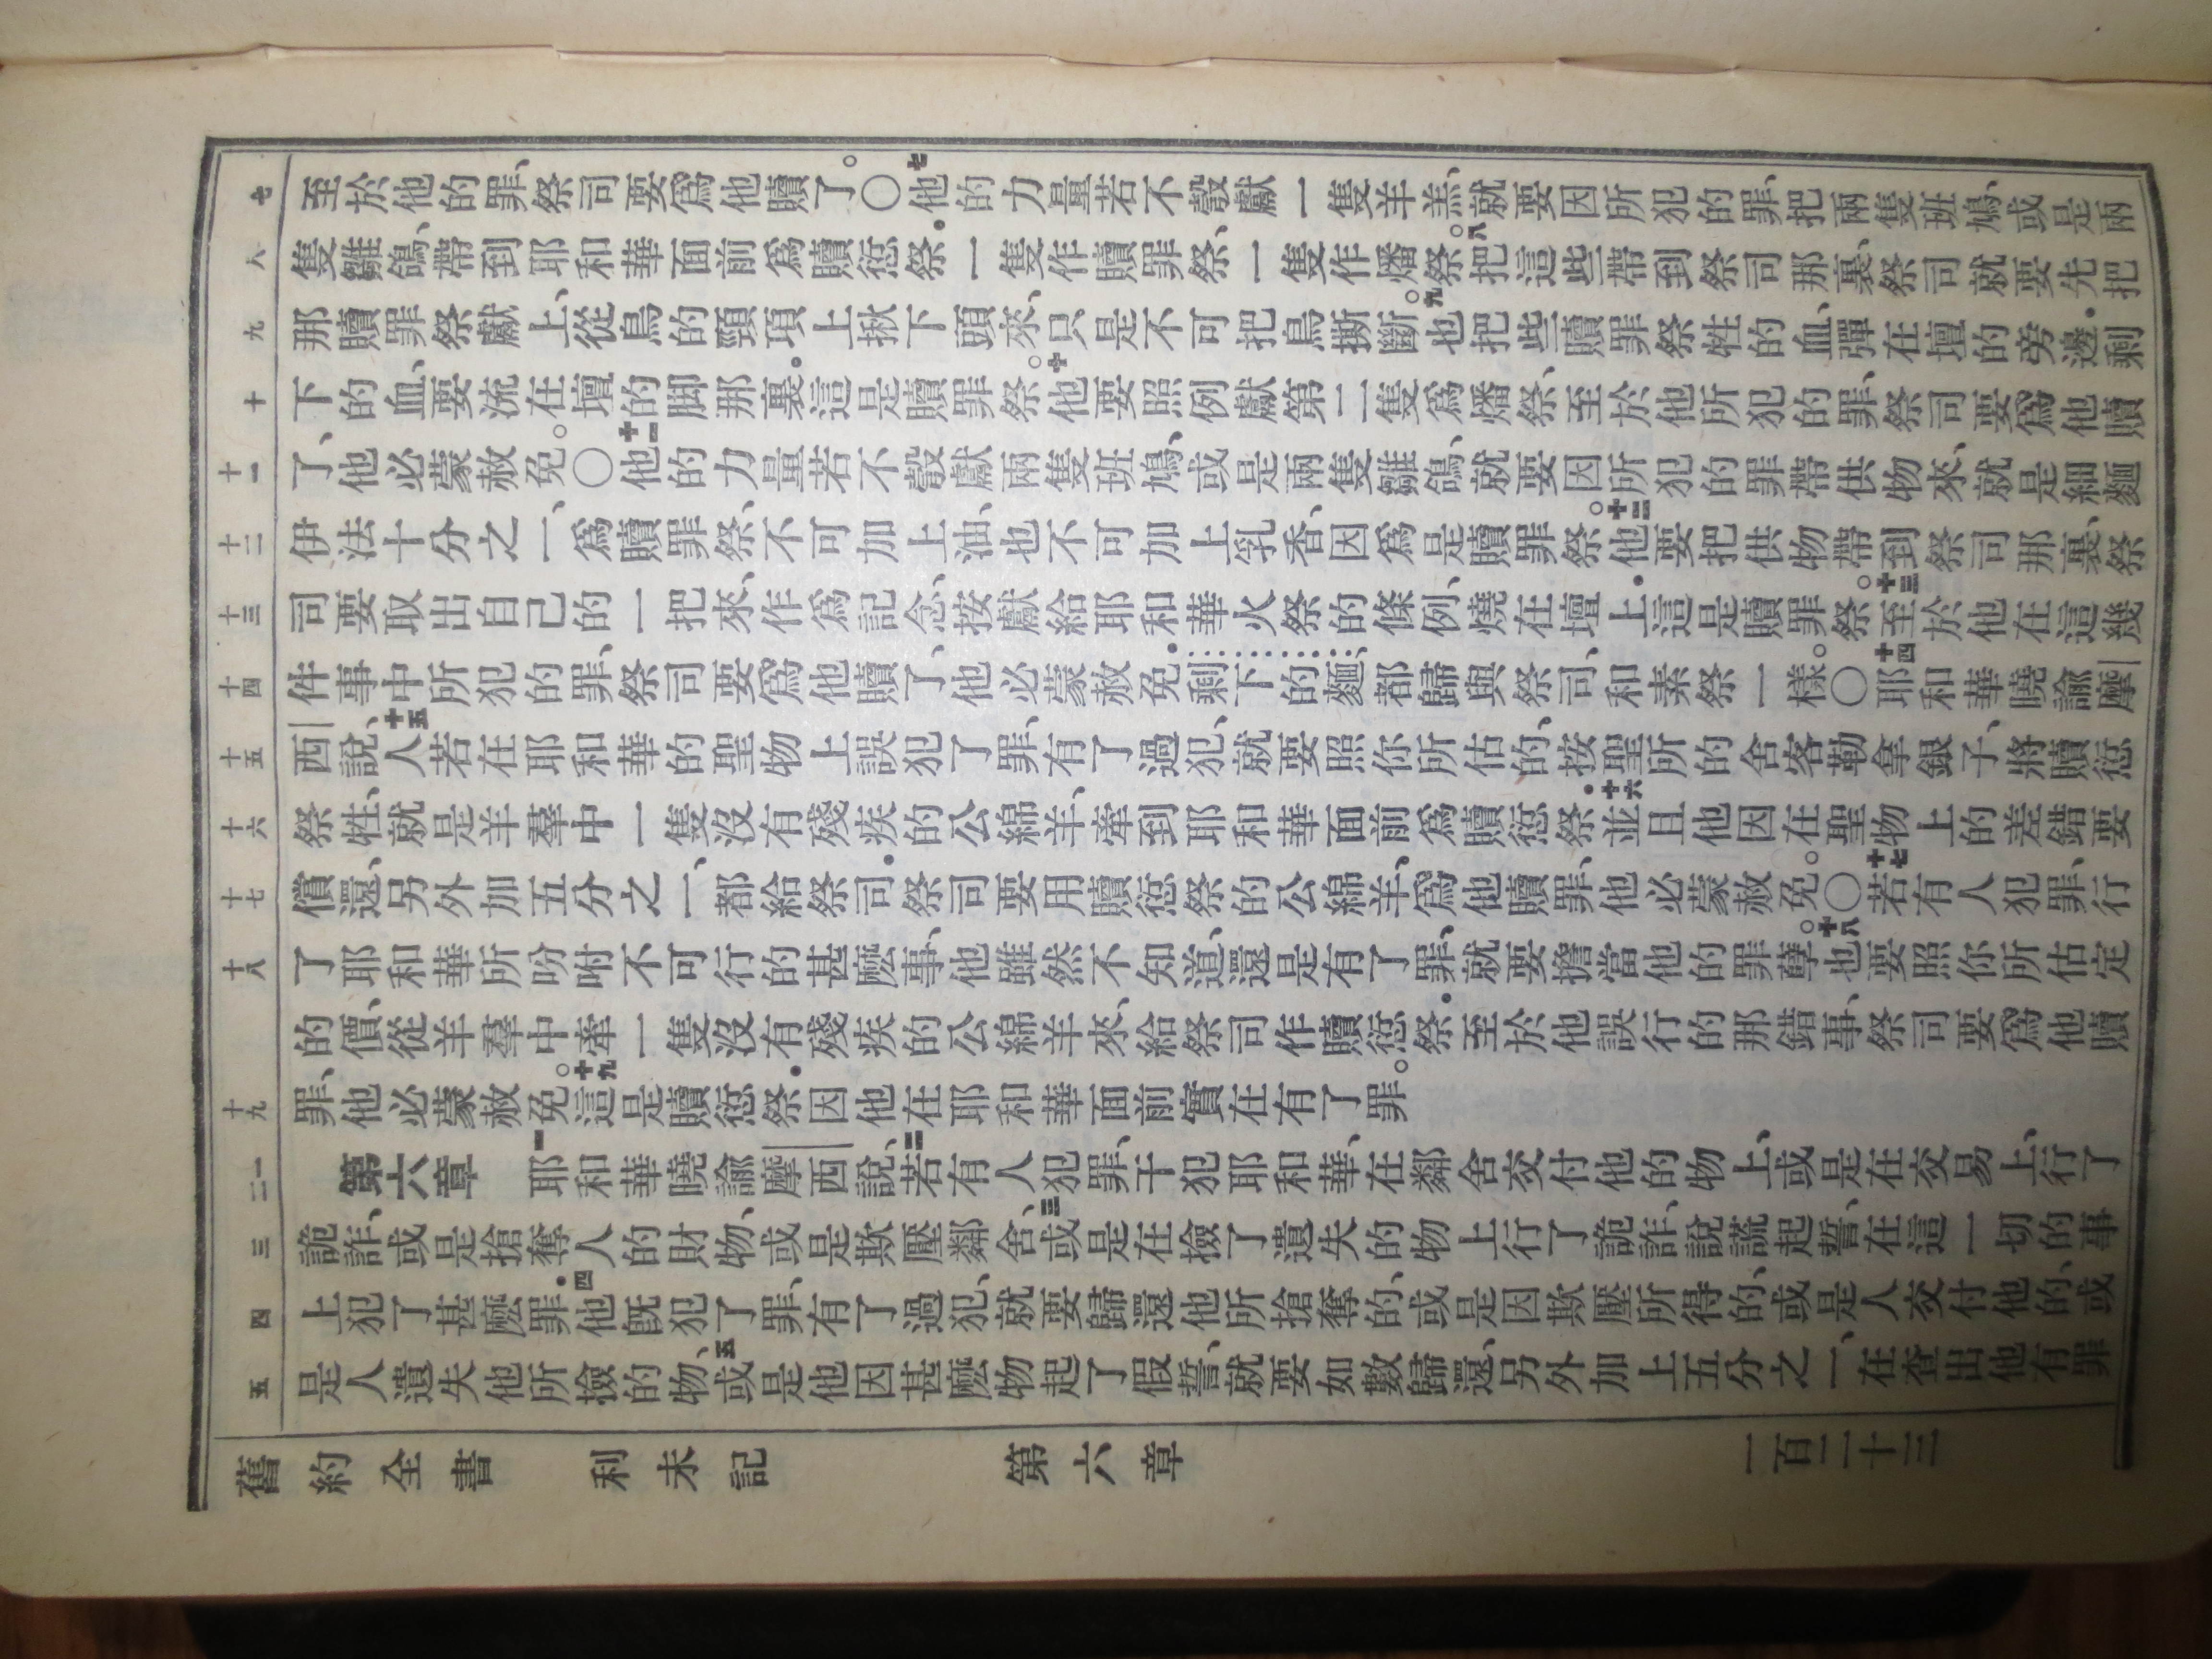 七 至於他的罪、祭司要爲他贖了。〇七他的力量若不彀獻一隻羊羔、就要因所犯的罪、把兩隻班鳩、或是兩
八 隻雛鴿、帶到耶和華面前爲贖愆祭．一隻作贖罪祭、一隻作燔祭。八把這些帶到祭司那裏、祭司就要先把
九 那贖罪祭獻上、從鳥的頸項上揪下頭來、只是不可把鳥撕斷。九也把些贖罪祭牲的血、彈在壇的旁邊．剩
十 下的血、要流在壇的脚那裏．這是贖罪祭。十他要照例獻第二隻爲燔祭、至於他所犯的罪、祭司要爲他贖
十一 了、他必蒙赦免。〇十一他的力量若不彀獻兩隻班鳩、或是兩隻雛鴿、就要因所犯的罪帶供物來、就是細麵
十二 伊法十分之一、爲贖罪祭、不可加上油、也不可加上乳香、因爲是贖罪祭。十二他要把供物帶到祭司那裏、祭
十三 司要取出自己的一把來、作爲記念、按獻給耶和華火祭的條例、燒在壇上．這是贖罪祭。十三至於他在這幾
十四 件事中所犯的罪、祭司要爲他贖了、他必蒙赦免．剩下的麵、都歸與祭司、和素祭一樣。〇十四耶和華曉諭摩
十五 西說、十五人若在耶和華的聖物上誤犯了罪、有了過犯、就要照你所估的、按聖所的舍客勒拿銀子、將贖愆
十六 祭牲、就是羊羣中一隻沒有殘疾的公綿羊、牽到耶和華面前爲贖愆祭．十六並且他因在聖物上的差錯要
十七 償還、另外加五分之一、都給祭司．祭司要用贖愆祭的公綿羊、爲他贖罪、他必蒙赦免。〇十七若有人犯罪、行
十八 了耶和華所吩咐不可行的甚麽事、他雖然不知道、還是有了罪、就要擔當他的罪孽。十八也要照你所估定
的價、從羊羣中牽一隻沒有殘疾的公綿羊來、給祭司作贖愆祭．至於他誤行的那錯事、祭司要爲他贖
十九 罪、他必蒙赦免。十九這是贖愆祭．因他在耶和華面前實在有了罪。
一二 第六章 一耶和華曉諭摩西說、二若有人犯罪、干犯耶和華、在鄰舍交付他的物上、或是在交易上、行了
三 詭詐、或是搶奪人的財物、或是欺壓鄰舍、三或是在撿了遺失的物上行了詭詐、說謊起誓、在這一切的事
四 上犯了甚麽罪．四他旣犯了罪、有了過犯、就要歸還他所搶奪的、或是因欺壓所得的、或是人交付他的、或
五 是人遺失他所撿的物、五或是他因甚麽物起了假誓、就要如數歸還、另外加上五分之一、在查出他有罪
舊約全書 利未記 第六章 一百二十三